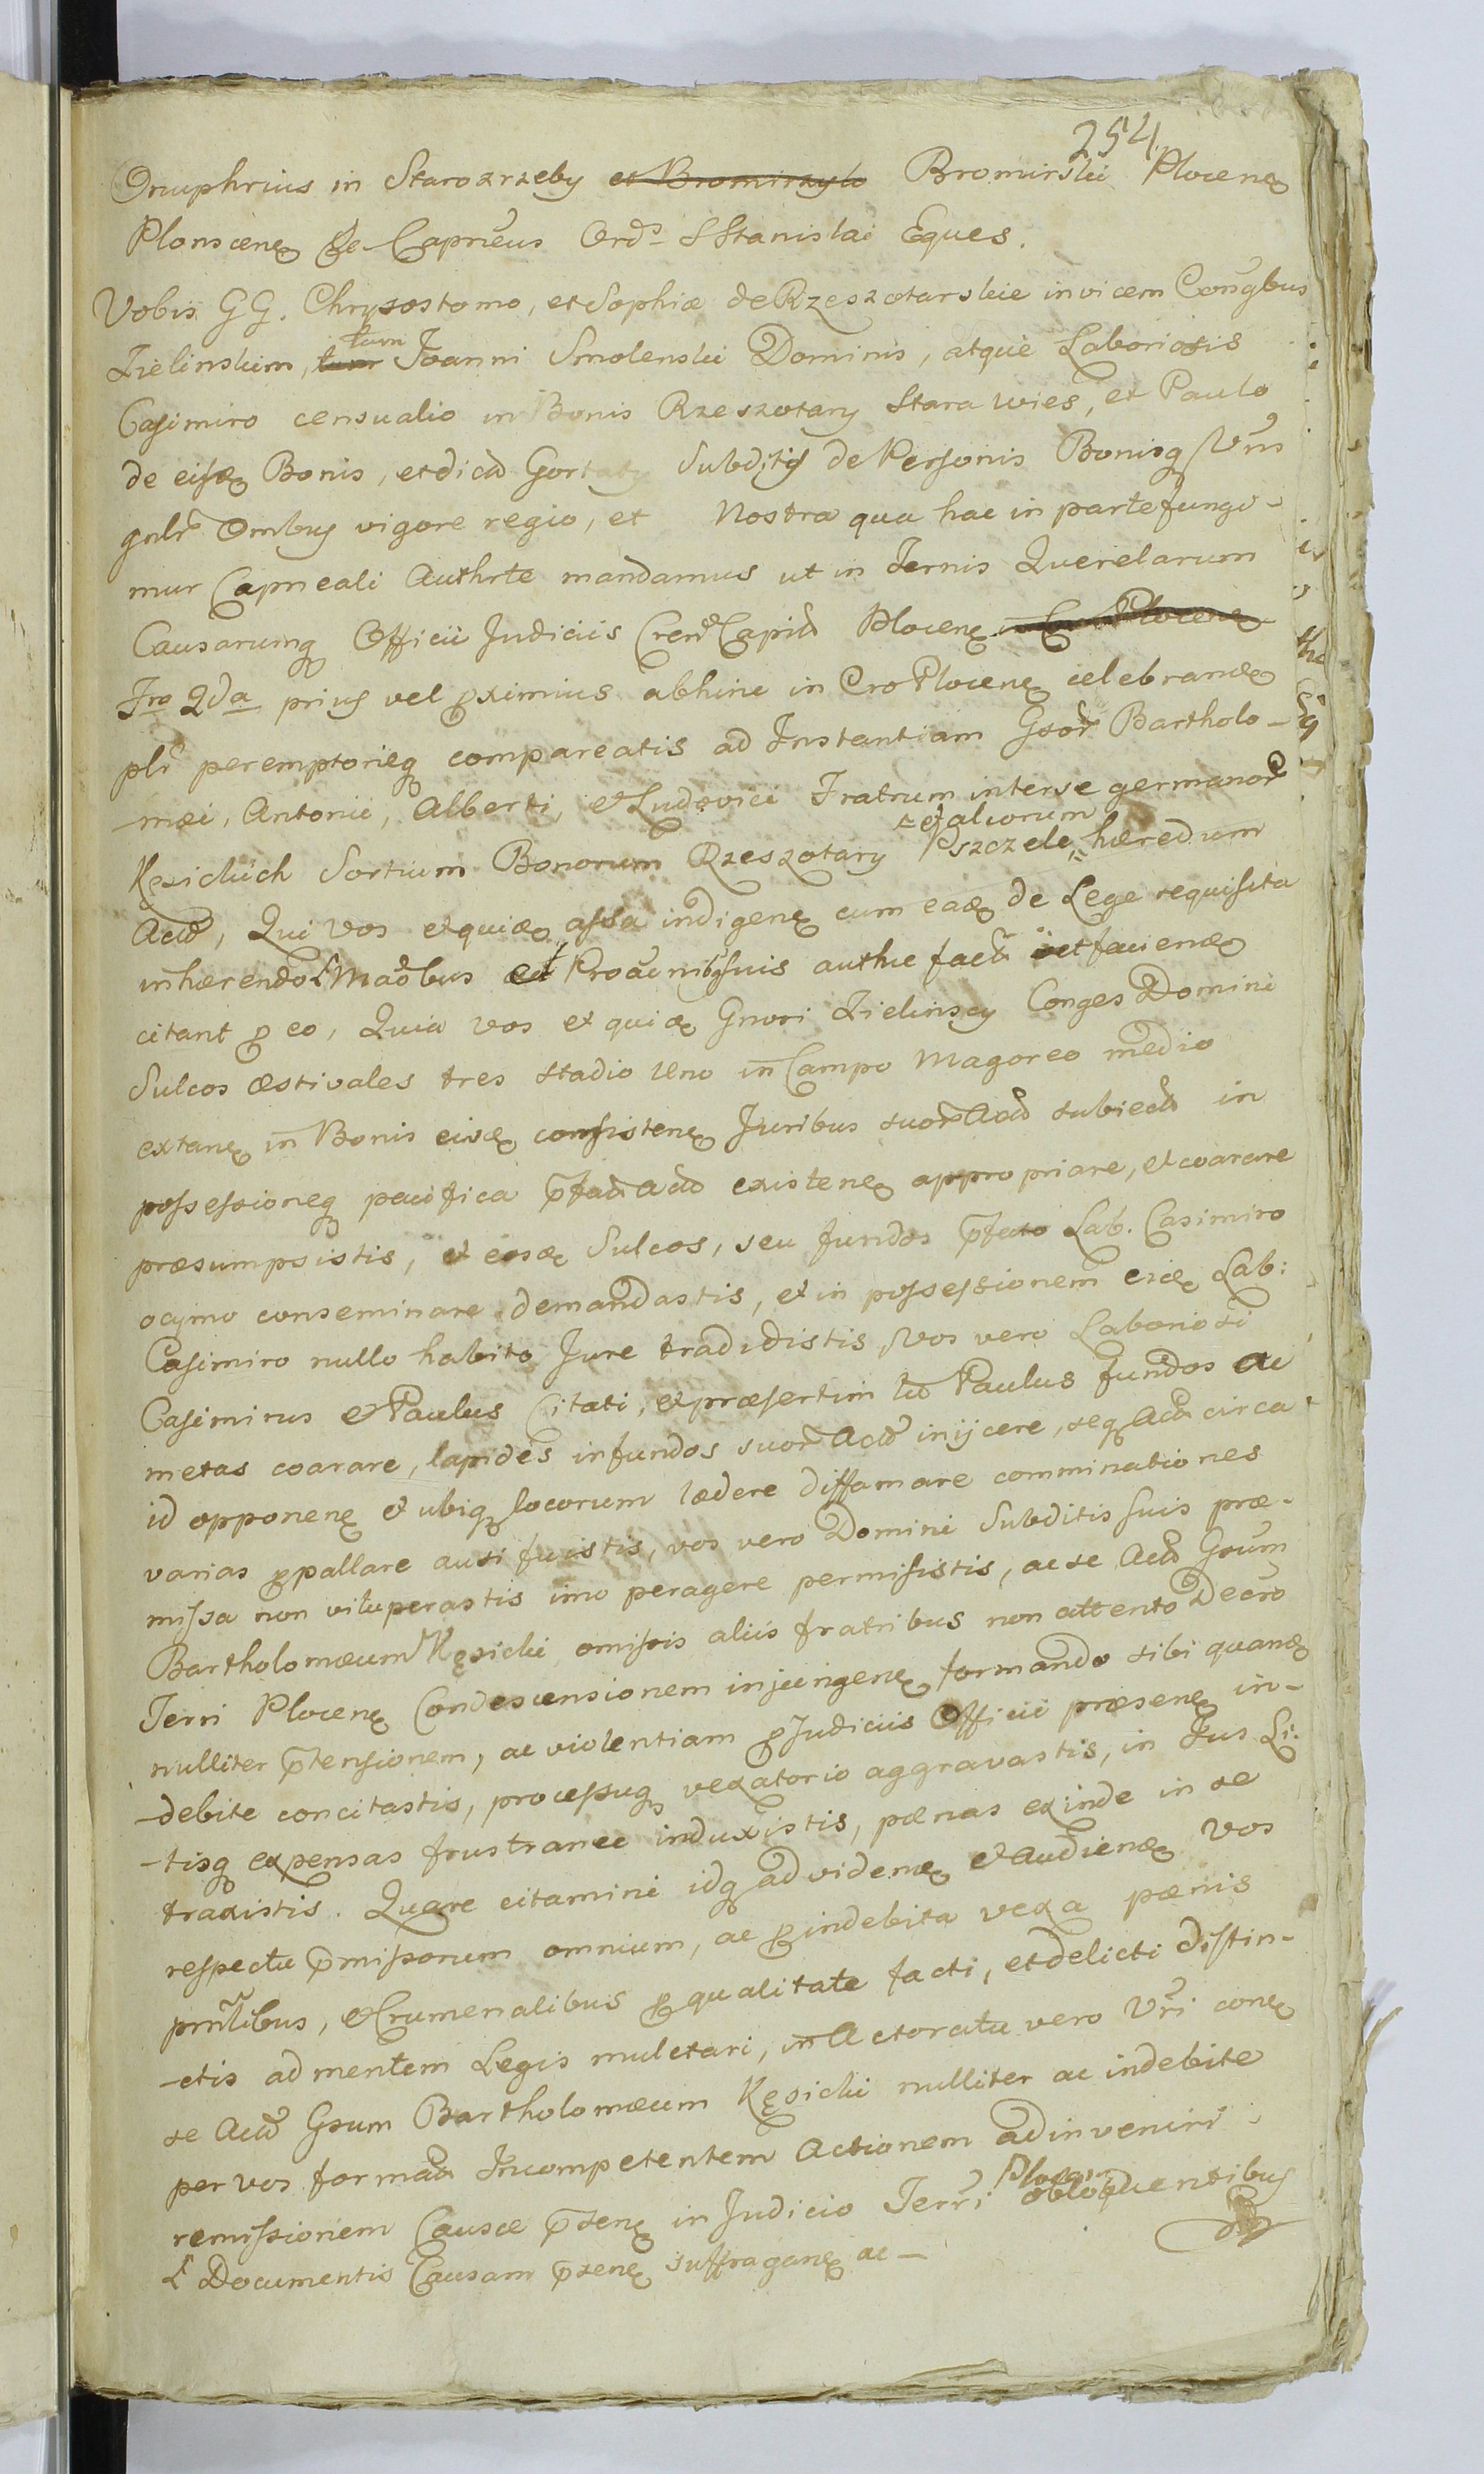 254
Onuphrius in Starozrzeby et Bromirzyło Bromirski Plocenę
Plonscenę Capneus Ords SStanislai Eques.
Vobis GG. Chrysostomo, et Sophiæ de Rzeszotarskie invicem Congbus
Zielinskim, tum tum Joanni Smolenski Dominis, atque Laboriosis
Casimiro censualio in Bonis Rzeszotary Stara wies, et Paulo
de eisdę Bonis, et dicto Subditis de Personis Bonisq Vris
gnlr Ombus vigore regio, et Nostra qua hac in parte fungi-
mur Capneali Authrte mandamus ut in Ternis Querelarum
Causarumq Officii Judiciis Plocenę
Fra 2da prius vel pximius abhinc in Cro Plocenę celebrandę
plr peremptorieq compareatis ad Instantiam Gsor Bartholo-
-mæi, Antonii, Alberti, et Ludovici Fratrum interse germanor
et aliorum
Kęsickich Sortium Bonorum Rzeszotary Pszczele hæredum
Actor, Qui Vos et quidę assa indigenę cum eadę de Lege requisita
inhærendo Madbus et suis authce facta et faciendę
citant p eo, Quia vos et quidę Gnosi Zielinscy Conges Domini
Sulcos æstivales tres stadio Uno in Campo Magoreo medio
extanę in Bonis eisdę consistenę Juribus suor Actor subiectos in
possessioneq pacifica pfator Actor existenę appropriare, et coarare
præsumpsistis, et eosdę Sulcos, seu fundos pfato Lab. Casimiro
ocymo conseminare demandastis, et in possessionem eidę Lab:
Casimiro nullo habito Jure tradidistis, Vos vero Laboriosi
Casimirus et Paulus Citati, et præsertim tu Paulus fundos ac
metas coarare, lapides in fundos suor Actor inijcere, seq Actor circa
id opponenę et ubiq locorum lædere diffamare comminationes
varias ppallare ausi fuistis, vos vero Domini Subditis suis præ-
missa non vituperastis imo peragere permisistis, ac se Actor Gsum
Bartholomæum Kęsicki omissis aliis fratribus non attento Decro
Terri Plocenę Condescensionem injungenę formando sibi quandę
nulliter ptensionem, ac violentiam p Judiciis Officii præsenę in-
-debite concitastis, processuq vexatorio aggravastis, in Jus Li-
-tisq expensas frustranee induxistis, pænas exinde in se
traxistis. Quare citamini idq ad videndę et audiendę Vos
respectu pmissorum omnium, ac p indebita vexa pænis
pnlibus, et Crumenalibus p qualitate facti, et delicti distin-
-ctis ad mentem Legis mulctari, in Actoratu vero Vri conę
se Actor Gsum Bartholomæum Kęsicki nulliter ac indebite
per vos format Incompetentem Actionem adinveniri
Plocen
remissionem Causæ psenę in Judicio Terri obloquentibus
Documentis Causam psenę suffraganę ac-